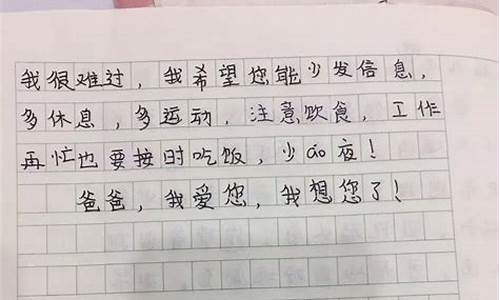 我很难过，我希望您能少发信息，
多休息，多运动，注意饮食，工作
再忙也要按时吃饭，少áo夜！
爸爸，我爱您，我想您了！